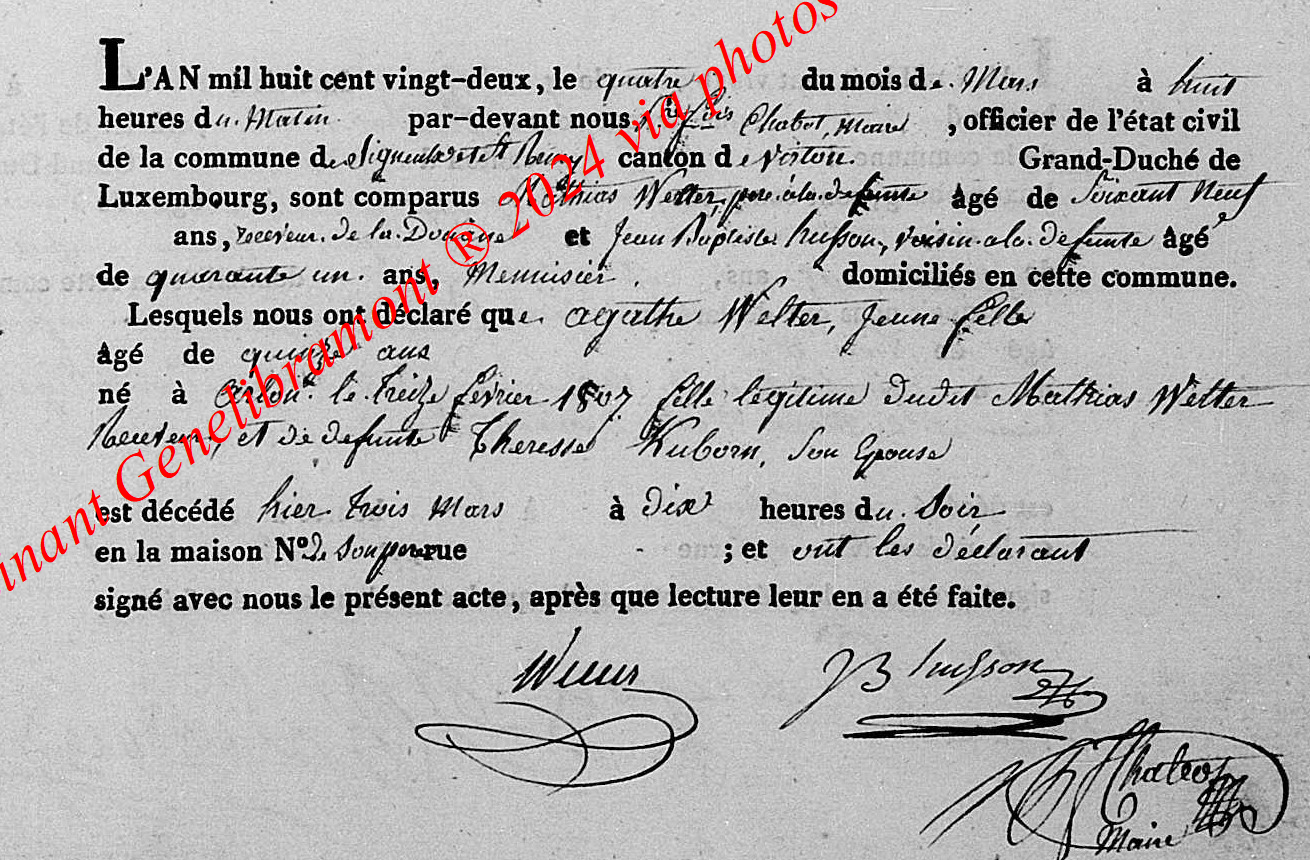 L'AN mil huit cent vingt-deux, le quatre du mois de Mars à huit
heures du Matin par-devant nous, Chabot, Maire, officier de l'état civil
de la commune de Signeulx et St Remy canton de Virton. Grand-Duché de
Luxembourg, sont comparus Mathias Welter, pere à la defunte âgé de Soixant Neuf
ans, receveur de la Douane et Jean Baptiste husson, voisin a la defunte âgé
de quarante un ans, Menuisier. domiciliés en cette commune.
Lesquels nous ont déclaré que agathe Welter, Jeune fille
âgé de quinze ans
né à Arlon le treize février 1807 fille légitime dudit Mathias Welter
Receveur, et de defunte Theresse Kuborn, Son Epouse
est décédé hier trois Mars à dix heures du Soir
en la maison N° de Son pere rue ; et ont les déclarant
signé avec nous le présent acte, après que lecture leur en a été faite.
JB husson
Chabot
Maire
nant Genelibramont ® 2024 via photos